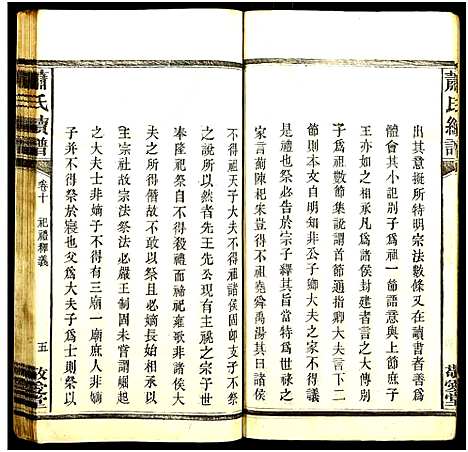 蕭氏續譜
出其意挺所特明宗法數條又在讀書者善
體會其小記別子爲祖一節語意與上節庶子
王亦如之相承凡爲諸侯封建者言之大傳別
子爲祖數節集說謂首節通指卿大夫言下二
節則本文自明知非公子卿大夫之家不得議
是禮也然皆告於宗子釋其旨當特爲世祿之
家言薊陳杞朱豈得不祖堯舜禹湯其曰諸侯
敬愛堂
不得祖天子大夫不得祖諸侯固卽支子不祭
之說所以然者先王先公大宗主之宗子守世
奉隆祀祭自不得殺禮而禘祀雍歌非諸侯大
夫之所得行故不敢以祭且必嫡長子乃得以
主宗社故宗法祭法必嚴王制固未嘗謂崛起
之大夫士非嫡子不得有三廟一廟庶人非嫡
子并不得祭於寢也父爲大夫子爲士則祭以
蕭氏續譜
卷十
祀禮釋義
五
敬愛堂